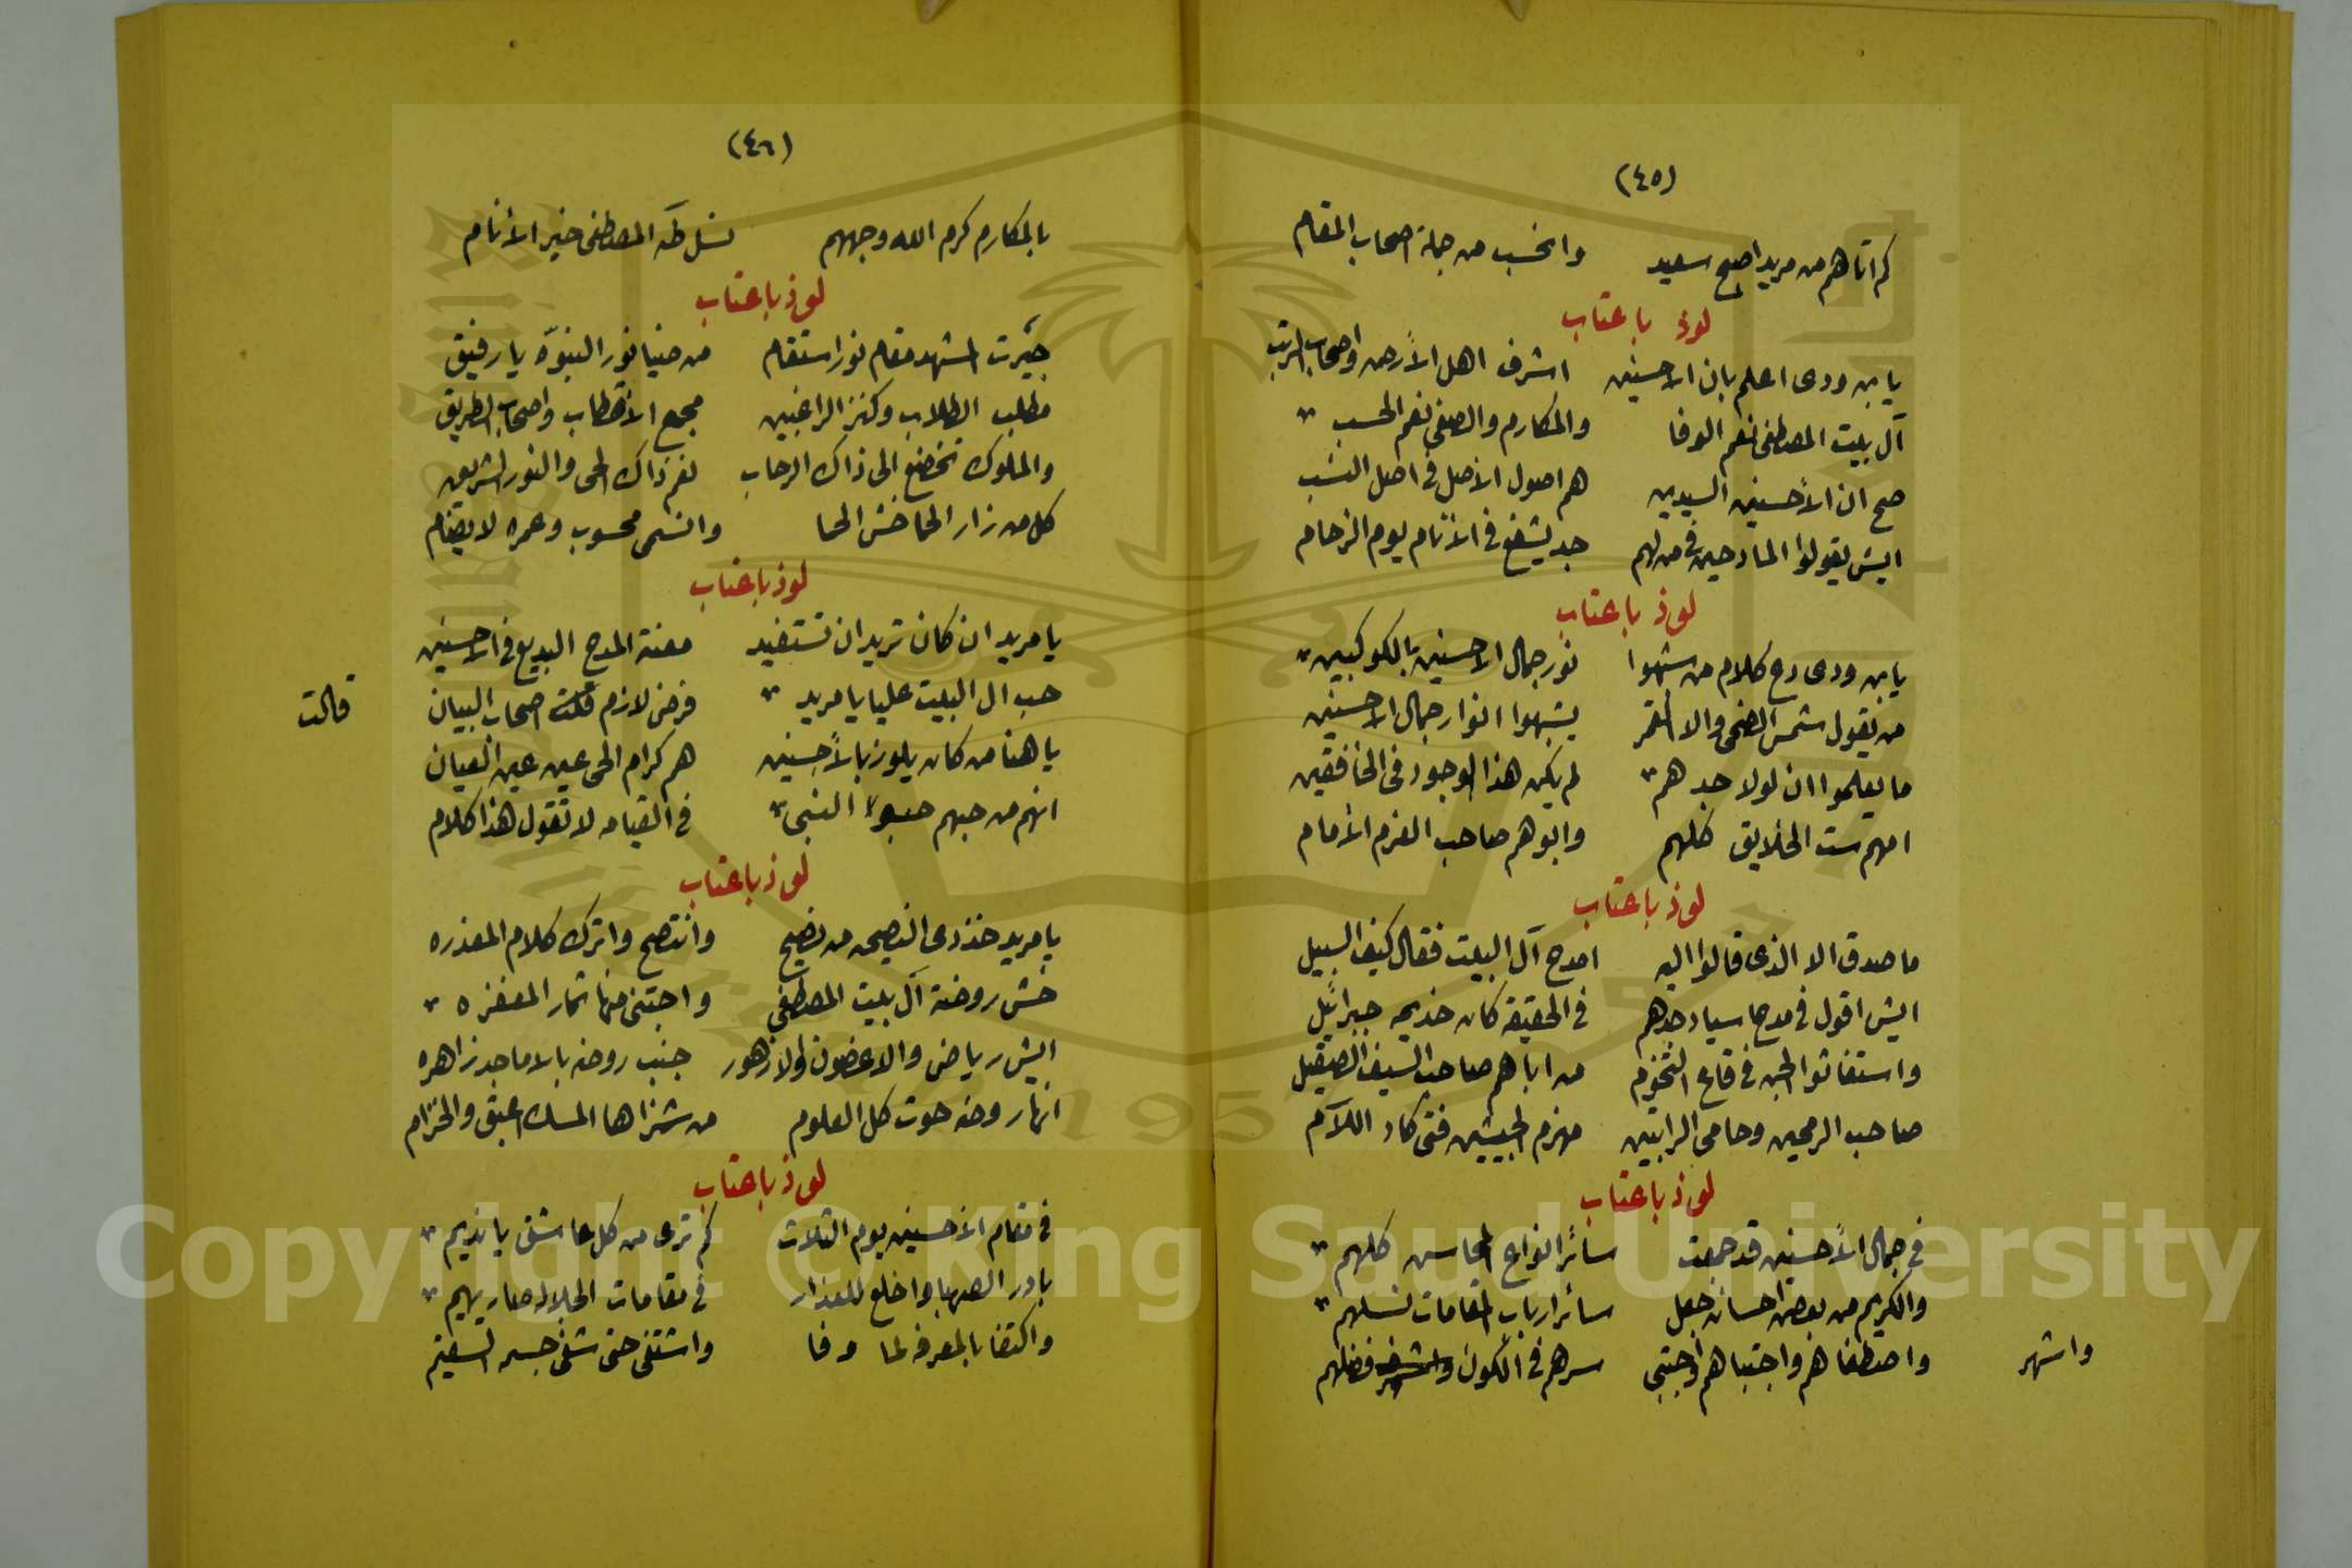 (٤٥)
كم اتاهم من مريد اصبح سعيد وانحسب من جملة اصحاب المقام
لوذ باعتاب
يا بن ودى اعلم بان الاحسنين اشرف اهل الأرض واصحاب الرتب
آل بيت المصطفى نعم الوفا والمكارم والصفى نعم الحسب
صح ان الأحسنين السيدين هم اصول الاصل فى اصل النسب
ايش يقولوا المادحين فى من لهم جد يشفع فى الأنام يوم الزحام
لوذ باعتاب
يا بن ودى دع كلام من شبهوا نور جمال الاحسنين بالكوكبين
من يقول شمس الضحى والا القمر يشبهوا انوار جمال الاحسنين
ما يعلموا ان لولا جدهم لم يكن هذا الوجود فى الخافقين
امهم ست الخلايق كلهم وابوهم صاحب العزم الأمام
لوذ باعتاب
ما صدق الا الذى قالوا اليه امدح آل البيت فقال كيف السبيل
ايش اقول فى مدح اسياد جدهم فى الحقيقة كان خديمه جبرائيل
واستغاثوا الجن فى قاع التخوم من اباهم صاحب السيف الصقيل
صاحب الرمحين وحامى الرايتين مهزم الجيشين فتى كاد اللآم
لوذ باعتاب
فى جمال الأحسنين قد جمعت سائر انواع المحاسن كلهم
والكريم من بعض احسانه جعل سائر ارباب المقامات نسلهم
واصطفاهم واجتباهم واجتبى سرهم فى الكون فضلهم
واشهر
(٤٦)
بالمكارم كرم الله وجههم نسل طه المصطفى خير الأنام
لوذ باعتاب
جيرت المشهد مقام نور استقام من ضيا نور النبوّه يا رفيق
مطلب الطلاب وكنز الراغبين مجمع الأقطاب واصحاب الطريق
والملوك تخضع الى ذاك الرحاب نعم ذاك الحى والنور الشريق
كل من زار الحما خش الحما وانسمى محسوب وعمره لا يضام
لوذ باعتاب
يا مريد ان كان تريد ان تستفيد معنة المدح البديع فى الاحسنين
حب ال البيت عليا يا مريد فرض لازم اصحاب البيان
قالت
يا هنا من كان يلوز بالأحسنين هم كرام الحى عين عين العيان
انهم من حبهم حبوا النبى فى القيامه لا تقول هذا كلام
لوذ باعتاب
يا مريد خذ دى النصيحه من نصيح وانتصح واترك كلام المعذره
خش روضة آل بيت المصطفى واجتنى منها ثمار المغفره
ايش رياض والاغصون والازهور جنب روضه بالاماجد زاهره
انها روضه حوت كل العلوم من شزاها المسك اعبق والخزام
لوذ باعتاب
فى مقام الاحسنين يوم الثلاث كم ترى من كل عاشق يا نديم
بادر الصهبا واخلع للعذار فى مقامات الجلاله صار يهيم
واكتفا بالمعرفه لما وفا واشتفى حتى شفى جسمه السقيم